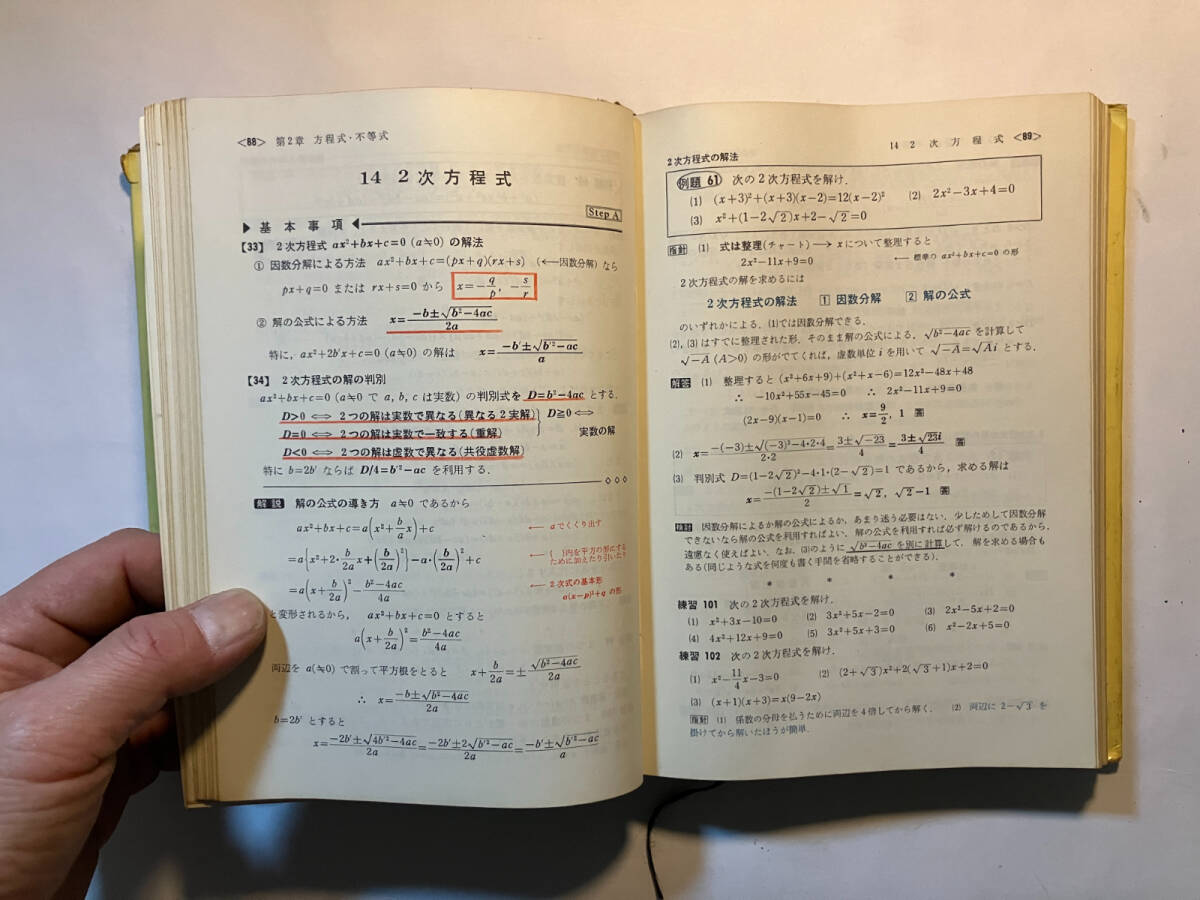 <88> 第2章 方程式・不等式
14 2次方程式
Step A
▶ 基本事項 ◀
【33】 2次方程式 ax²+bx+c=0 (a≒0) の解法
① 因数分解による方法 ax²+bx+c=(px+q)(rx+s) (←因数分解) なら
px+q=0 または rx+s=0 から x=-q/p, -s/r
② 解の公式による方法 x=(-b±√(b²-4ac))/2a
特に, ax²+2b'x+c=0 (a≒0) の解は x=(-b'±√(b'²-ac))/a
【34】 2次方程式の解の判別
ax²+bx+c=0 (a≒0 で a, b, c は実数) の判別式を D=b²-4ac とする.
D>0 ⟺ 2つの解は実数で異なる(異なる2実解)
D=0 ⟺ 2つの解は実数で一致する(重解)
} D≧0 ⟺ 実数の解
D<0 ⟺ 2つの解は虚数で異なる(共役虚数解)
特に b=2b' ならば D/4=b'²-ac を利用する.
解説 解の公式の導き方 a≒0 であるから
ax²+bx+c=a(x²+b/a x)+c ← aでくくり出す
=a{x²+2・b/2a x+(b/2a)²}-a・(b/2a)²+c ← { }内を平方の形にするために加えたり引いたり
=a(x+b/2a)²-(b²-4ac)/4a ← 2次式の基本形 a(x-p)²+q の形
と変形されるから, ax²+bx+c=0 とすると
a(x+b/2a)²=(b²-4ac)/4a
両辺を a(≒0) で割って平方根をとると x+b/2a=±√(b²-4ac)/2a
∴ x=(-b±√(b²-4ac))/2a
b=2b' とすると
x=(-2b'±√(4b'²-4ac))/2a=(-2b'±2√(b'²-ac))/2a=(-b'±√(b'²-ac))/a
14 2次方程式 <89>
2次方程式の解法
例題 61 次の2次方程式を解け.
(1) (x+3)²+(x+3)(x-2)=12(x-2)² (2) 2x²-3x+4=0
(3) x²+(1-2√2)x+2-√2=0
指針 (1) 式は整理(チャート)→ xについて整理すると
2x²-11x+9=0 ← 標準の ax²+bx+c=0 の形
2次方程式の解を求めるには
2次方程式の解法 1 因数分解 2 解の公式
のいずれかによる. (1)では因数分解できる.
(2), (3)はすでに整理された形. そのまま解の公式による. √(b²-4ac) を計算して
√-A (A>0) の形がでてくれば, 虚数単位 i を用いて √-A=√A i とする.
解答 (1) 整理すると (x²+6x+9)+(x²+x-6)=12x²-48x+48
∴ -10x²+55x-45=0 ∴ 2x²-11x+9=0
(2x-9)(x-1)=0 ∴ x=9/2, 1 答
(2) x=(-(-3)±√((-3)²-4・2・4))/2・2=(3±√-23)/4=(3±√23i)/4 答
(3) 判別式 D=(1-2√2)²-4・1・(2-√2)=1 であるから, 求める解は
x=(-(1-2√2)±√1)/2=√2, √2-1 答
検討 因数分解によるか解の公式によるか, あまり迷う必要はない. 少しためして因数分解
できないなら解の公式を利用すればよい. 解の公式を利用すれば必ず解けるのであるから,
遠慮なく使えばよい. なお, (3)のように √(b²-4ac) を別に計算して, 解を求める場合も
ある(同じような式を何度も書く手間を省略することができる).
* * * *
練習 101 次の2次方程式を解け.
(1) x²+3x-10=0 (2) 3x²+5x-2=0 (3) 2x²-5x+2=0
(4) 4x²+12x+9=0 (5) 3x²+5x+3=0 (6) x²-2x+5=0
練習 102 次の2次方程式を解け.
(1) x²-11/4 x-3=0 (2) (2+√3)x²+2(√3+1)x+2=0
(3) (x+1)(x+3)=x(9-2x)
指針 (1) 係数の分母を払うために両辺を4倍してから解く. (2) 両辺に 2-√3 を
掛けてから解いたほうが簡単.